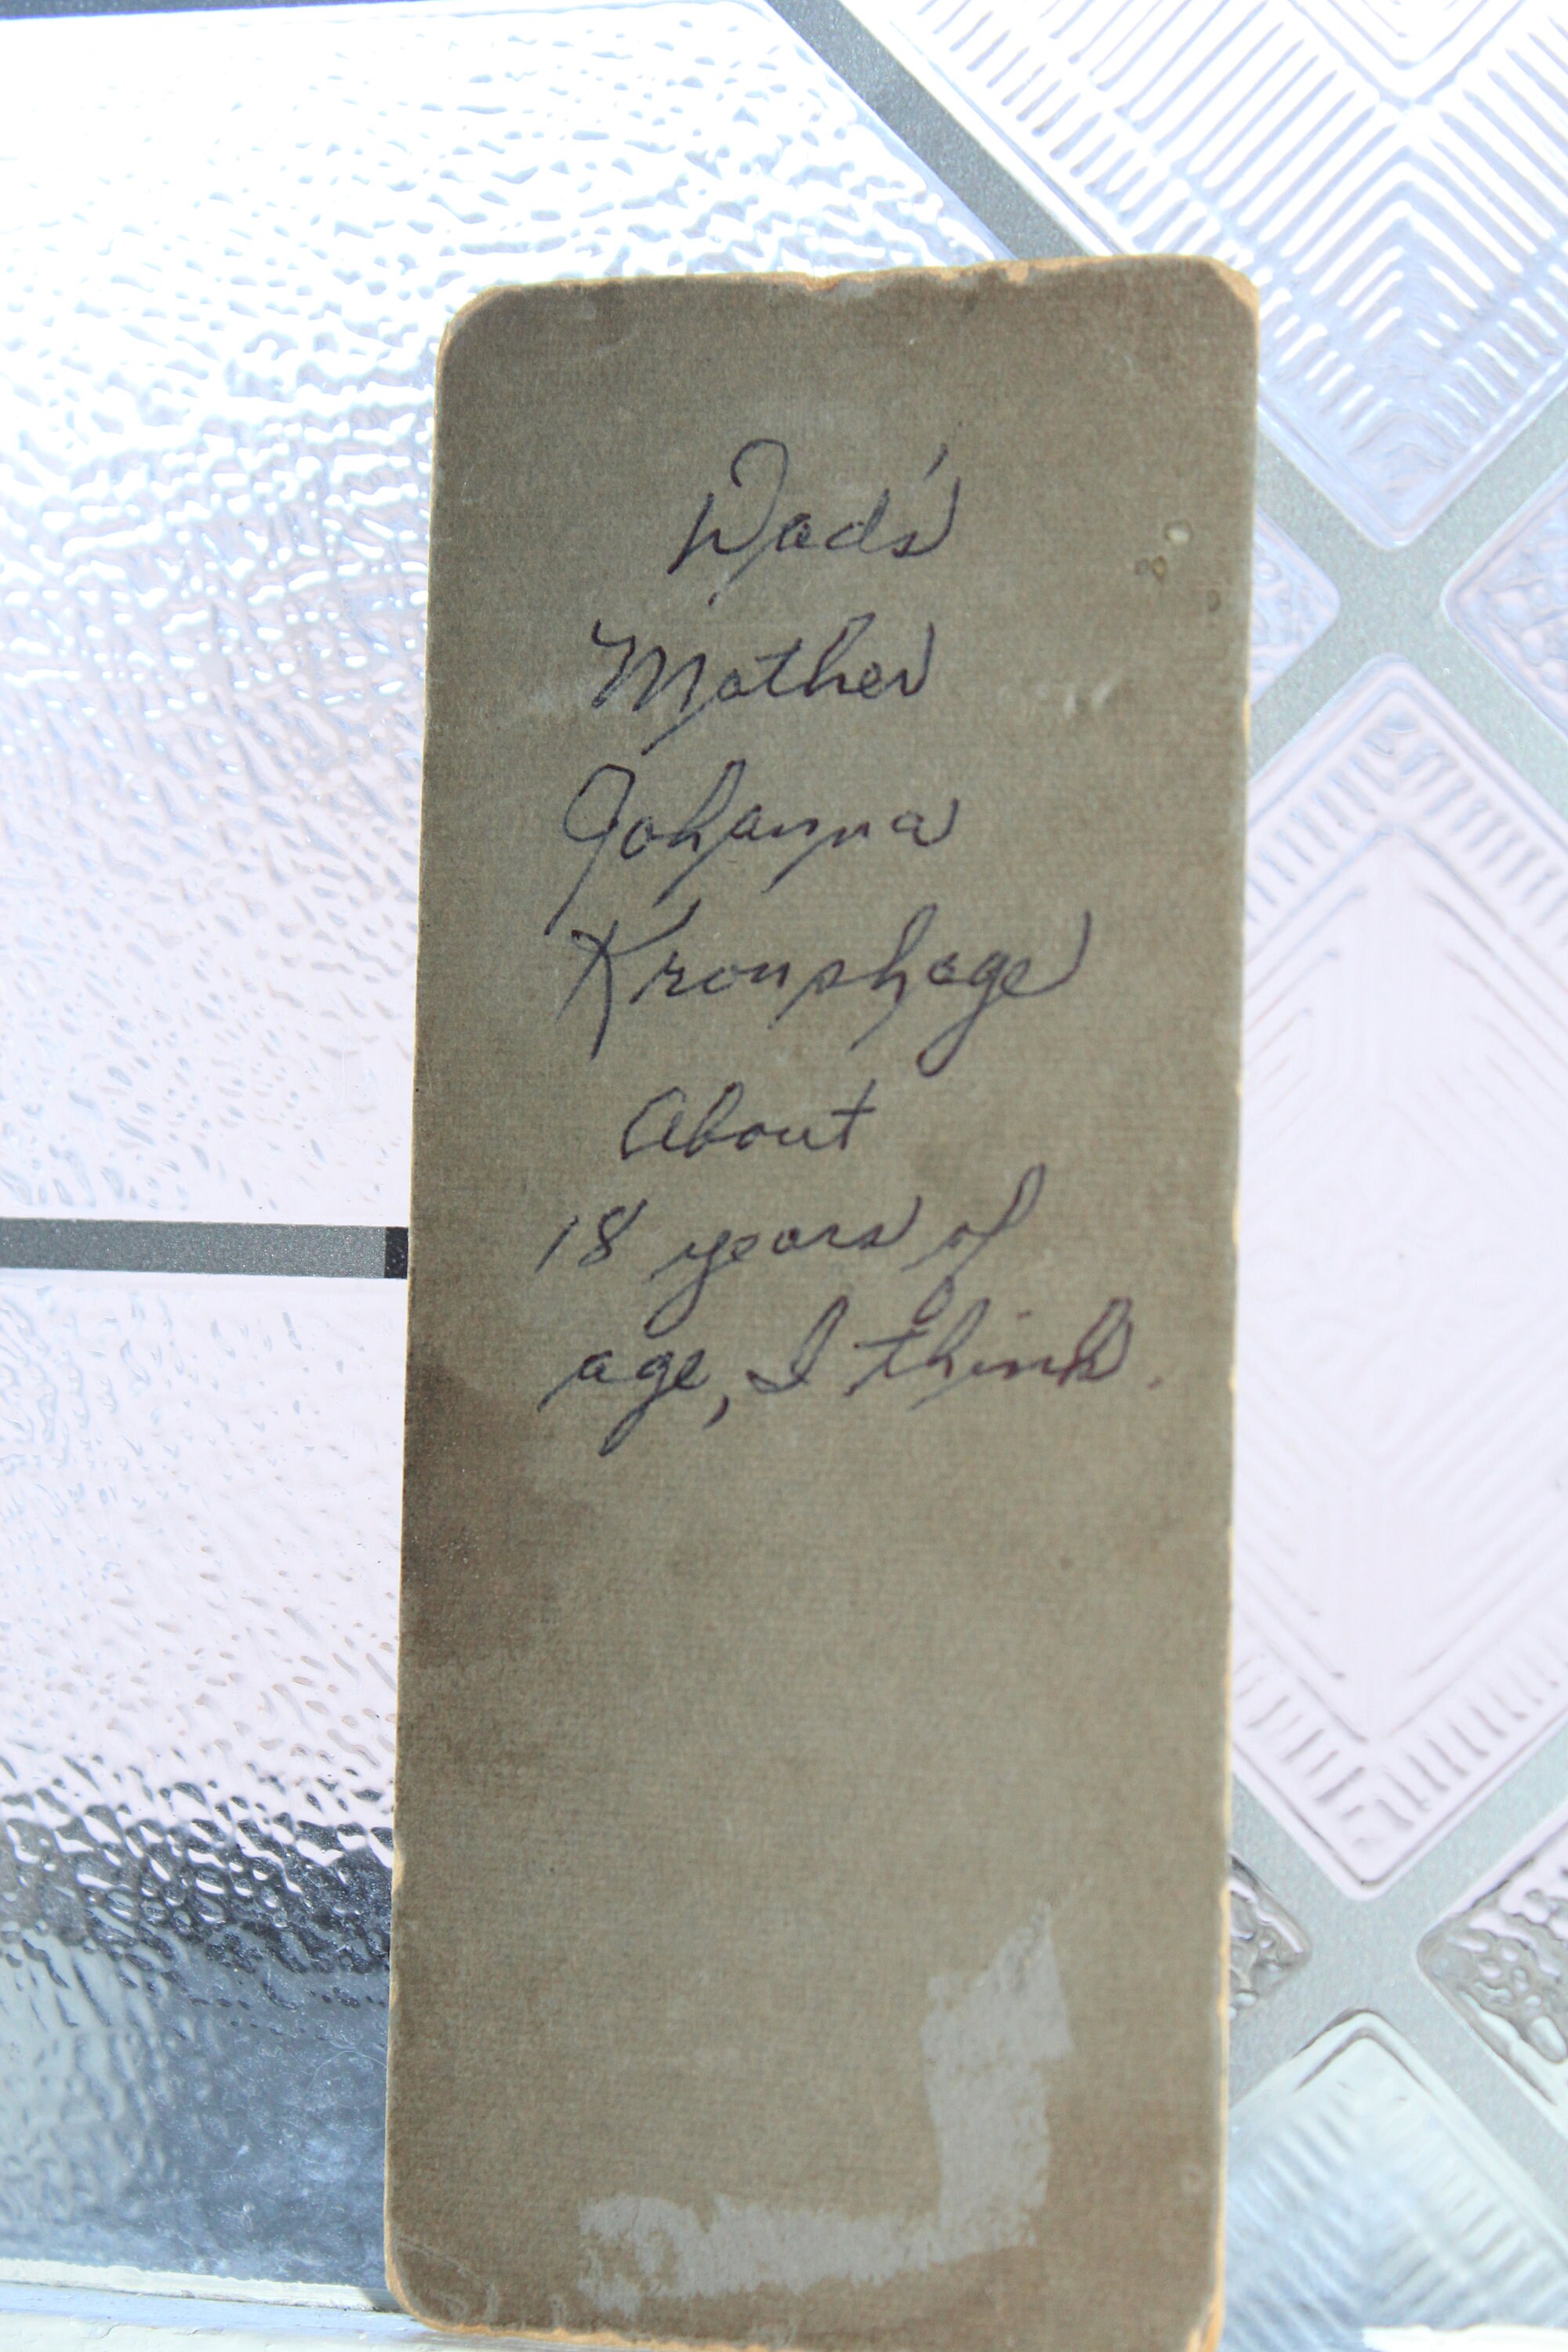 Dad's
Mother
Johanna
Kronshage
About
18 years of
age, I think.